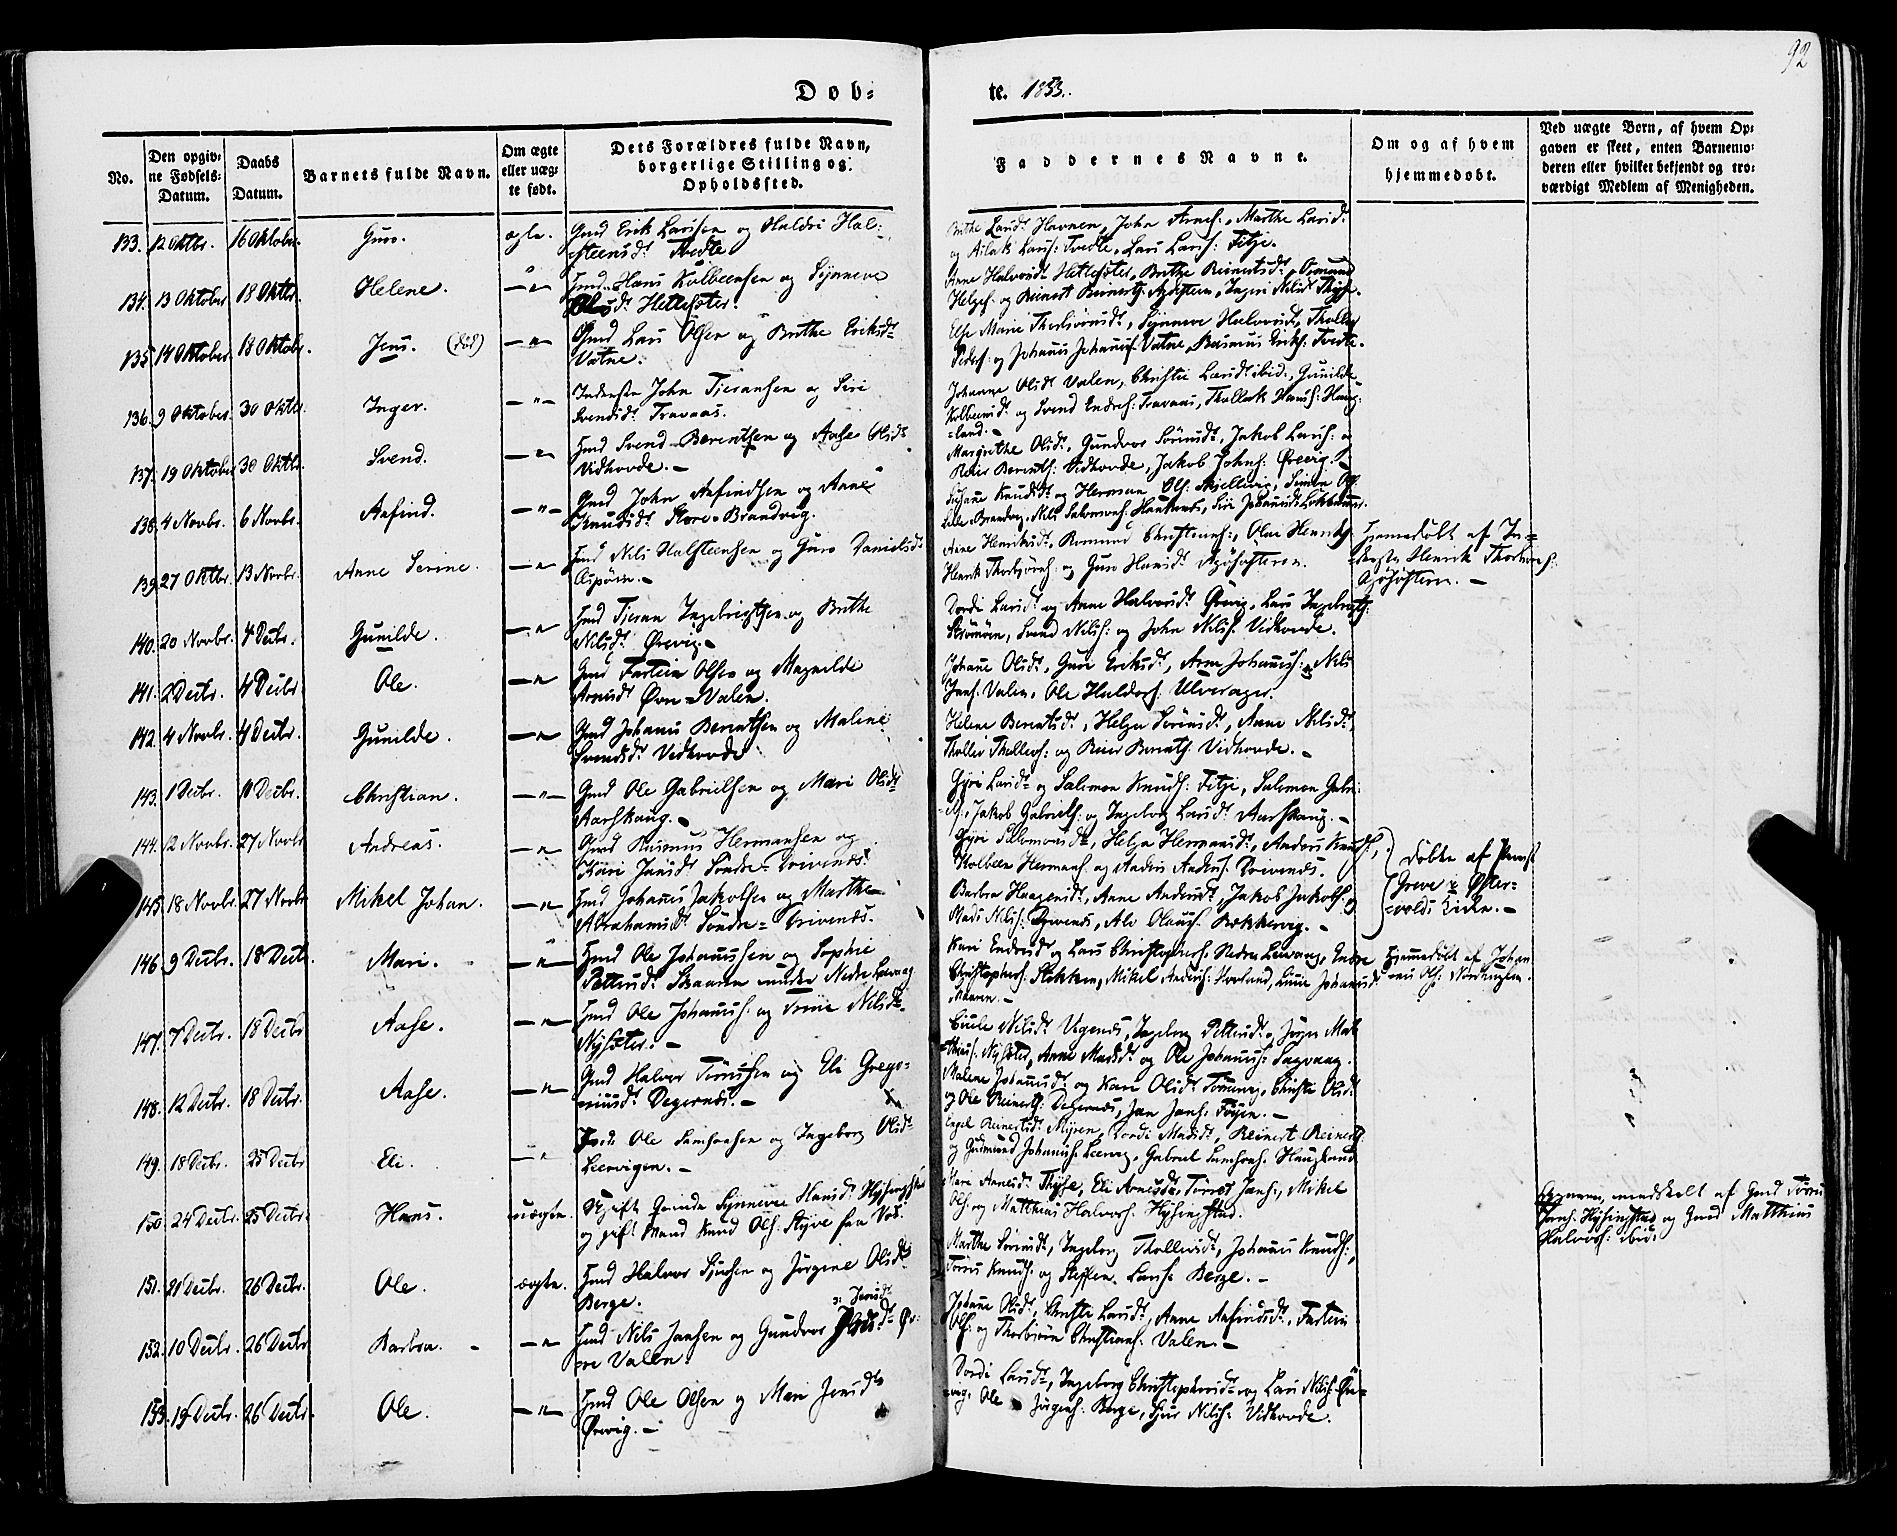 92
Døb- te. 1853.
No.
Den opgiv-
ne Fødsels-
Datum.
Daabs
Datum.
Barnets fulde Navn.
Om ægte
eller uæg-
te født.
Dets Forældres fulde Navn,
borgerlige Stilling og
Opholdssted.
Faddernes Navne.
Om og af hvem
hjemmedøbt.
Ved uægte Børn, af hvem Op-
gaven er skeet, enten Barnemo-
deren eller hvilket bekjendt og tro-
værdigt Medlem af Menigheden.
133. 12 Oktbr. 16 Oktober. Guro. ægte. Gmd Erik Larsen og Haldri Hal-
steensdt Tvedte
Brithe Larsdt Havnen, John Arnes:, Marthe Larsdt
og Aslak Lars: Tvedte, Lars Lars: Fitje.
134. 13 Oktober 18 Oktbr. Helene. —"— Hmd Hans Kolbeensen og Synneve
Olsdt Hettesæter.
Anne Halvorsdt Hettesæter, Brithe Reinertsdt, Osmund
Helges: og Reinert Reinerts:
135. 14 Oktober. 18 Oktobr. Jens. (død) —"— Gmd Lars Olsen og Brithe Eriksdt
Vatne.
Else Marie Thorbjörnsdt, Synneve Halvorsdt, Thollev
Peders: og Johannes Johannes: Vatne, Rasmus Eriks: Tvedte.
136. 9 Oktober. 30 Oktbr. Inger. —"— Inderste John Tjeransen og Siri
Svendsdt Travaas.
Johanne Olsdt Valen, Christie Larsdt ibid:, Gunilde
Kolbeensdt og Svend Endres: Travaas, Thollak Hans: Haug-
=land.—
137. 19 Oktober 30 Oktbr. Svend. —"— Hmd Svend Berentsen og Aase Olsdt
Vidhovde.—
Margrethe Olsdt, Gundvor Sörensdt, Jakob Lars: og
Reier Berents: Vidhovde, Jakob Johns: Ørevig.
138. 4 Novbr. 6 Novbr. Asfind. —"— Gmd John Asfindsen og Anne
Knudsdt Store-Brandvig.
Susanne Knudsdt og Herman Ols: Skjellevig, Simon Ols:
Lille-Brandvig, Nils Salomons: Hankenes, Siri Johannesdt
139. 27 Oktbr. 13 Novbr. Anne Serine. —"— Hmd Nils Halsteensen og Guro Danielsdt
Aspöen.—
Anne Henriksdt, Christians:, Olai Henriks:
Henrik Thorbjörns: og Guro Hansdt
Hjemmedöbt af In-
derste Henrik Thorbjörns:
140. 20 Novbr. 4 Decbr. Gunilde. —"— Hmd Tjeran Ingebrigtsen og Brithe
Nilsdt Ørevig.—
Dordi Larsdt og Anne Halvorsdt Ørevig, Lars Ingebrigts:
Strömöen, Svend Nils: og John Nils: Vidhovde.
141. 2 Decbr. 4 Decbr. Ole. —"— Gmd Fartein Olsen og Magnilde
Arnesdt Övre-Valen.
Johanne Olsdt, Guro Eriksdt, Arne Johannes:, Nils
Jans: Valen, Ole Haldors: Ulverager.
142. 4 Novbr. 4 Decbr. Gunilde. —"— Gmd Johannes Berentsen og Malene
Svendsdt Vidhovde
Helene Berentsdt, Helga Sörensdt, Anne Nilsdt,
Thollev Thollevs: og Reier Berents: Vidhovde.—
143. 1 Decbr. 11 Decbr. Christian. —"— Gmd Ole Gabrielsen og Mari Olsdt
Aarskaug.—
Gyri Larsdt og Salomon Knuds: Fitje, Salomon Gabri-
els:, Jakob Gabriels: og Ingeborg Larsdt Aarskaug.—
144. 12 Novbr. 27 Novbr. Andreas. —"— Gmd Rasmus Hermansen og
Kari Jansdt Söndre-Drivenes.
Gyri Salomonsdt, Helga Hermansdt, Anders Knuds:,
Kolbeen Hermans: og Anders Anders: Drivenes.
Döbte af Præst
Greve i Öster-
=volds Kirke.—
145. 18 Novbr. 27 Novbr. Mikel Johan. —"— Hmd Johannes Jakobsen og Marthe
Abrahamsdt Söndre-Drivenes.
Barbra Haagensdt, Anne Andersdt, Jakob Jakobs: og
Mads Nils: Drivenes, Alv Olaus: Bekkervig.—
146. 9 Decbr. 18 Decbr. Mari. —"— Hmd Ole Johannessen og Sophie
Pettersdt Skaaren under Nedre Leervaag
Kari Endresdt og Lars Christophers: Nedre Leervaag, Endre
Christophers: Stokken, Mikel Anders: Hovland, Johannesdt
Skaaren.—
Hjemmedöbt af Johan-
nes Ols:
147. 7 Decbr. 18 Decbr. Aase. —"— Hmd Ole Johannes: og Trine Nilsdt
Nysæter.—
Nilsdt Vegenes, Ingeborg Pettersdt, Jörgen Mat-
thias: Nysæter, Anne Madsdt og Ole Johannes: Sagvaag.
148. 12 Decbr. 18 Decbr. Aase. —"— Gmd Halvor Törressen og Eli Grego-
riusdt Degernes.—
Malene Johannesdt og Kari Olsdt Christie Olsdt
og Ole Reinerts: Degernes, Jan Jans: Föyen.—
149. 18 Decbr. 25 Decbr. Eli. —"— Ole Samsonsen og Ingeborg Olsdt
Leervigen.—
Engel Reinertsdt Myren, Dordi Madsdt, Reinert Reinerts:
og Gudmund Johannes: Leervig, Gabriel Samsons: Haugland
150. 24 Decbr. 25 Decbr. Hans. uægte. Ugift Qvinde Synneve Hansdt Hysingstad
og gift Mand Knud Ols: Styve fra Vos.
Kari Arnesdt Thyse, Eli Arnesdt, Törres Jans:, Mikel
Ols: og Matthias Halvors: Hysingstad.
Opgaven meddeelt af Gmd Törres
Jans: Hysingstad og Gmd Matthias
Halvors: ibid:
151. 21 Decbr. 26 Decbr. Ole. ægte. Hmd Halvor Sjursen og Jörgine Olsdt
Berge.
Marthe Sörensdt, Ingeborg Thollevsdt, Johannes Knuds:,
Törres Knuds: og Steffen Lars: Berge.—
152. 10 Decbr. 26 Decbr. Barbra. —"— Hmd Nils Jansen og Gundvor Jensdt Öv-
re Valen.
Johanne Olsdt, Christie Larsdt, Anne Asfindsdt, Fartein
Ols: og Thorbjörn Christians: Valen.—
153. 19 Decbr. 26 Decbr. Ole. —"— Hmd Ole Olsen og Mari Jensdt
Ørevig.—
Dordi Larsdt, Ingeborg Christophersdt og Lars Nils: Øre-
vig, Ole Jörgens: Berge, Sjur Nils: Vidhovde.